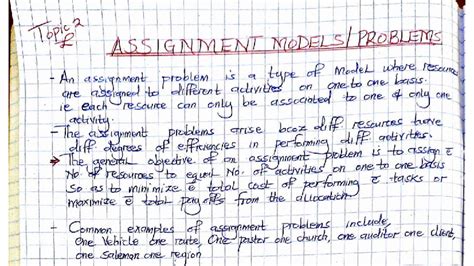 Topic 2
ASSIGNMENT MODELS/PROBLEMS
- An assignment problem is a type of model where resources
are assigned to different activities on one to one basis.
ie each resource can only be associated to one & only one
activity.
- The assignment problems arise bcoz diff resources have
diff degrees of efficiencies in performing diff activities.
The general objective of an assignment problem is to assign
No. of resources to equal No. of activities on one to one basis
so as to minimize total cost of performing tasks or
maximize total pay offs from the allocation.
- Common examples of assignment problems include,
One Vehicle one route, One pastor one church, one auditor one client,
one salemon one region